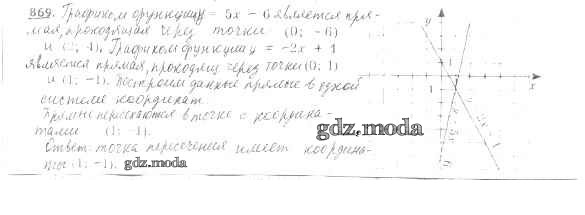 869. Графиком функции y = 5x - 6 является пря-
мая, проходящая через точки (0; -6)
и (2; 4). Графиком функции y = -2x + 1
является прямая, проходящ через точки (0; 1)
и (1; -1). Построим данные прямые в одной
системе координат.
Прямые пересекаются в точке с координа-
тами (1; -1).
Ответ: точка пересечения имеет координа-
ты (1; -1).
gdz.moda
gdz.moda
y
x
1
1